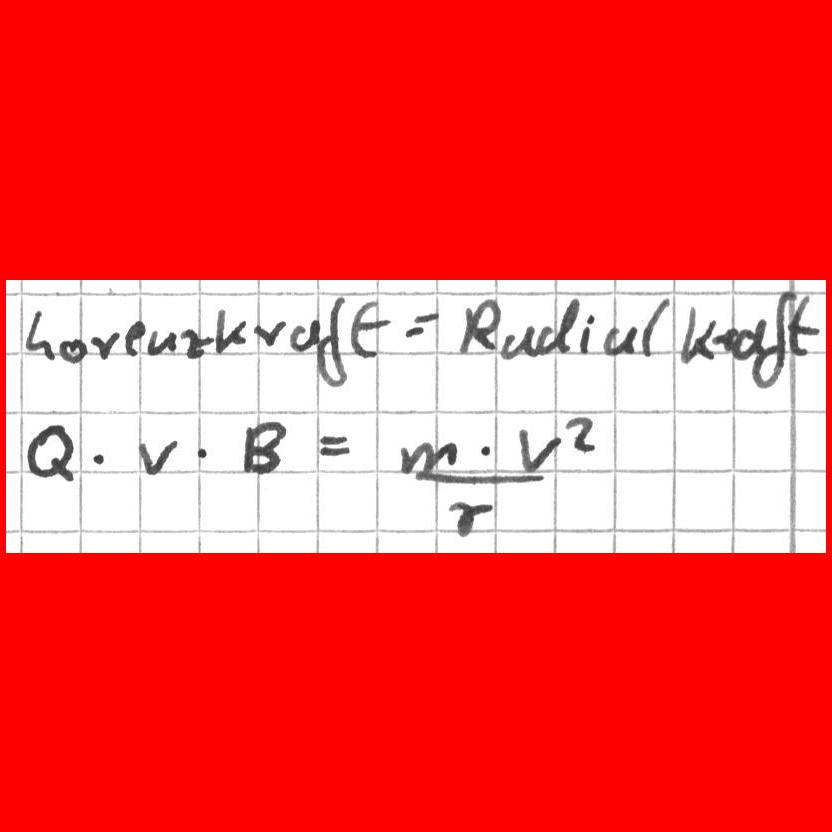 Lorenzkraft = Radialkraft
Q · v · B = m · v² / r